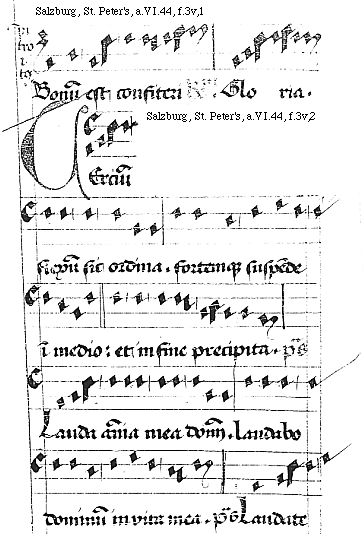 Salzburg, St. Peter's, a.VI.44, f.3v,1
Bonū est confiteri Glo ria.
Salzburg, St. Peter's, a.VI.44, f.3v,2
Erciū
sic ordina. fortemq suspēde
ī medio: et in fine precipita. p̄s
Lauda aīa mea dom̄. laudabo
dominū in vita mea. p̄s Laudate